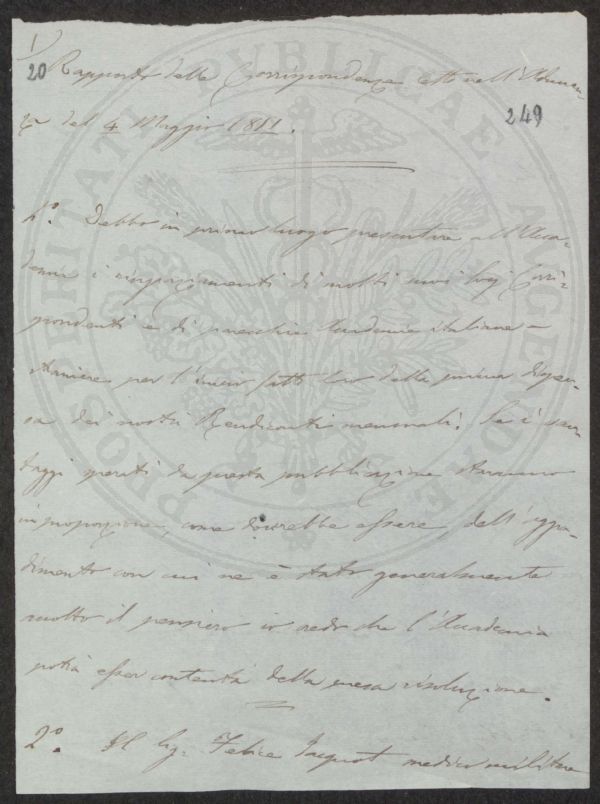 1
20 Rapporto della Corrispondenza letto nell'Adunan-
za del 4 Maggio 1851.
249
1º. Debbo in primo luogo presentare all'Acca-
demia i ringraziamenti di molti suoi Sigi Corri-
pondenti e di parecchie Accademie italiane e
straniere per l'invio fatto loro della prima dispen-
sa dei nostri Rendiconti mensuali. Se i van-
taggi sperati da questa pubblicazione staranno
in proporzione, come dovrebbe essere, dell'aggra-
dimento con cui ne è stato generalmente
accolto il pensiero io credo che l'Accademia
potrà esser contenta della presa risoluzione.
2º. Il Sig. Felice Jacquot medico militare
PROSPERITATI PVBLICAE AVGENDAE